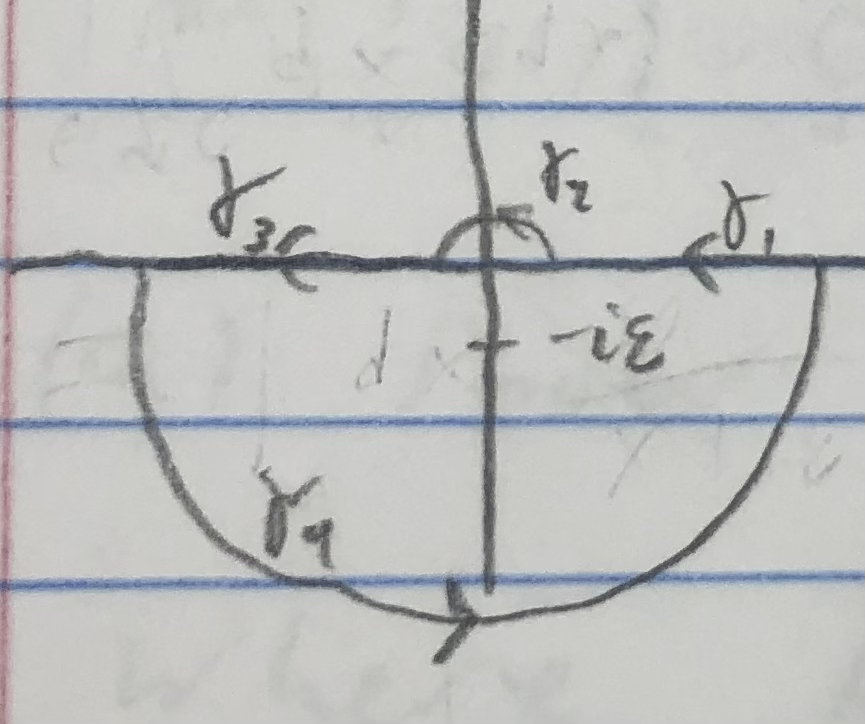 γ₂
γ₃ γ₁
-iε
γ₄